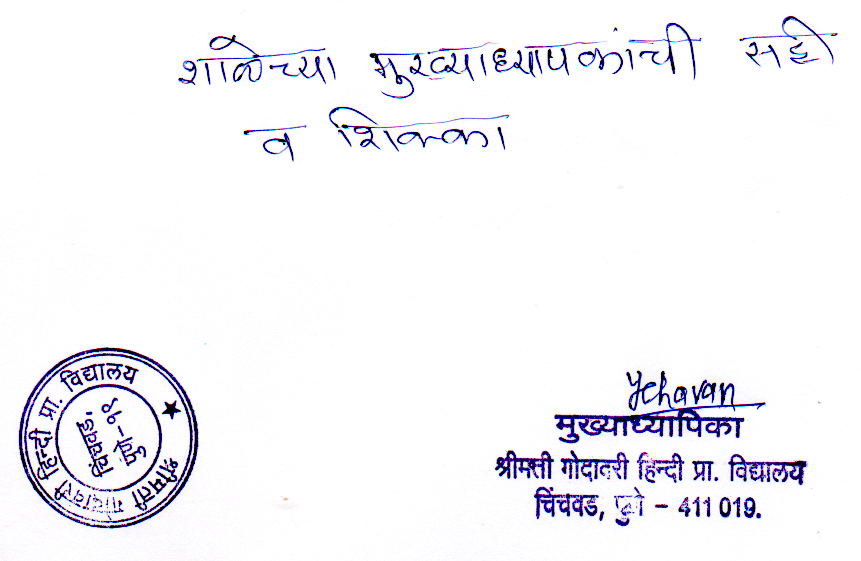 शाळेच्या मुख्याध्यापकांची सही
व शिक्का
श्रीमती गोदावरी हिन्दी प्रा. विद्यालय
चिंचवड,
पुणे-१९
Ychavan
मुख्याध्यापिका
श्रीमती गोदावरी हिन्दी प्रा. विद्यालय
चिंचवड, पुणे - 411 019.